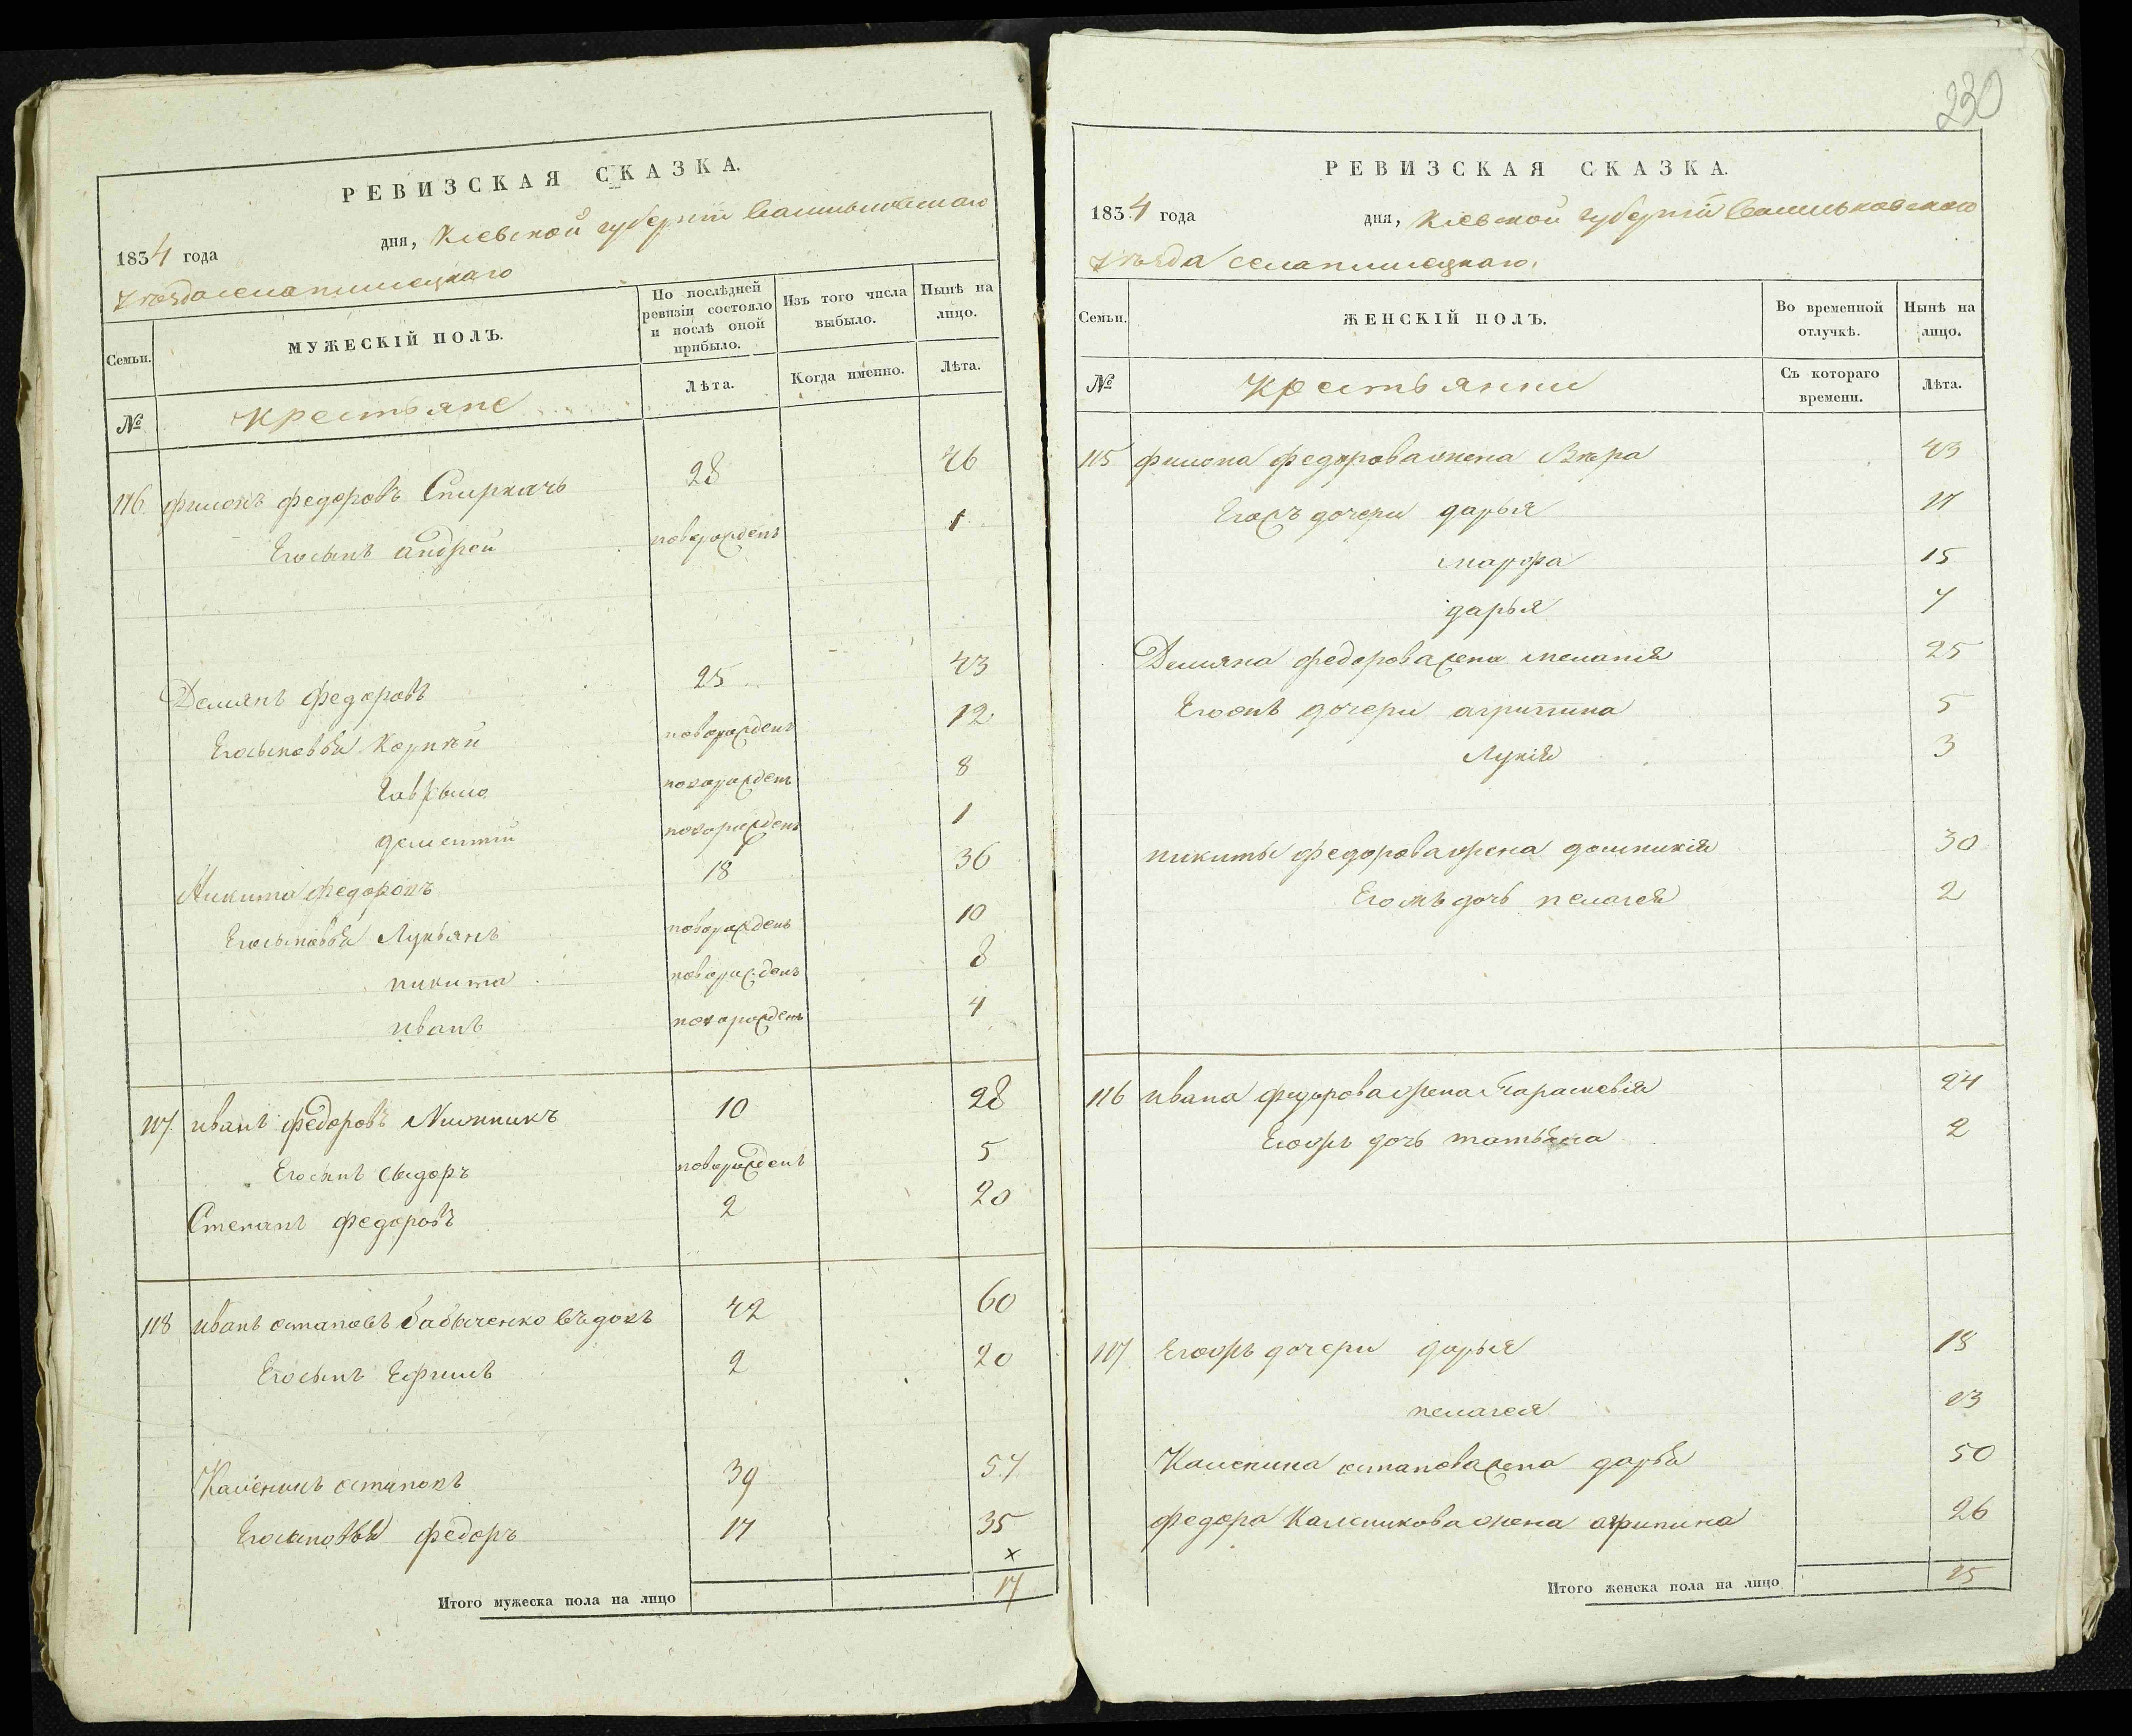 РЕВИЗСКАЯ СКАЗКА.
1834 года дня, Кіевской губерніи Васильковскаго
уѣзда села
Семьи. МУЖЕСКІЙ ПОЛЪ. По послѣдней ревизіи состояло и послѣ оной прибыло. Изъ того числа выбыло. Нынѣ на лицо.
№ Крестьяне Лѣта. Когда именно. Лѣта.
116 филонъ федоровъ 28 46
Егосынъ андрей новорожденъ 1
Демянъ федоровъ 25 43
Егосыновья Корнѣй новорожденъ 12
Гаврыло новорожденъ 8
дементій новорожденъ 1
Никита федоровъ 18 36
Егосыновья Лукьянъ новорожденъ 10
никита новорожденъ 8
иванъ новорожденъ 4
117 иванъ федоровъ 10 28
Егосынъ сыдоръ новорожденъ 5
Степанъ федоровъ 2 20
118 иванъ остаповъ бабыченко вѣдокъ 42 60
Егосынъ Ефимъ 2 20
остаповъ 39 57
Егосыновья федоръ 17 35
х
Итого мужеска пола на лицо 17
230
РЕВИЗСКАЯ СКАЗКА.
1834 года дня, Кіевской губерніи Васильковскаго
уѣзда села
Семьи. ЖЕНСКІЙ ПОЛЪ. Во временной отлучкѣ. Нынѣ на лицо.
№ Крестьянки Съ котораго времени. Лѣта.
115 филона федорова жена Вѣра 43
дочери дарья 17
марфа 15
дарья 7
Демяна федорова жена меланія 25
дочери агрипина 5
Лукія 3
никиты федорова жена домникія 30
дочь пелагея 2
116 ивана федорова жена Параскевія 24
дочь татьяна 2
117 дочери дарья 18
пелагея 13
остапова жена дарья 50
федора жена агрипина 26
Итого женска пола на лицо 15